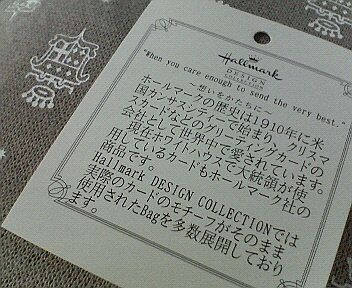 Hallmark
DESIGN
COLLECTION
"When you care enough to send the very best."
～想いをかたちに～
ホールマークの歴史は1910年に米
国カンザスシティーで始まり、クリスマ
スカードなどのグリーティングカードの
会社として世界中で愛されています。
現在ホワイトハウスで大統領が使
用しているカードもホールマーク社の
商品です。
Hallmark DESIGN COLLECTIONでは
実際のカードのモチーフがそのまま
使用されたBagを多数展開しており
ます。